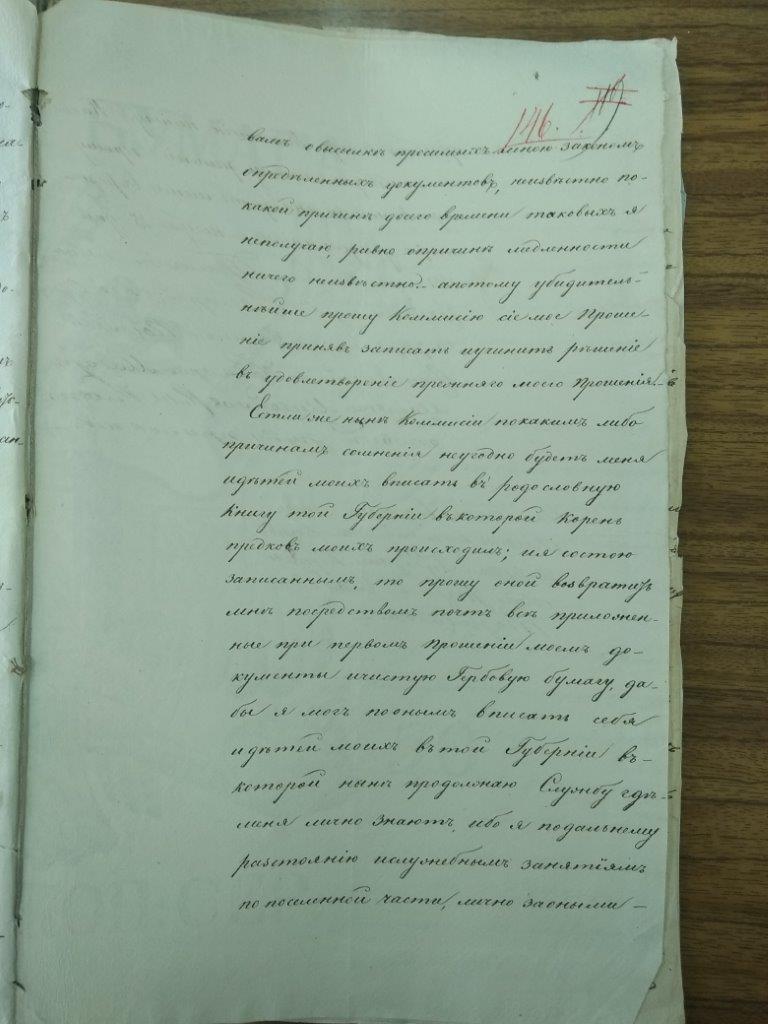 146.
вамъ о высилкѣ просимыхъ мною закономъ
опредѣленныхъ документовъ, неизвѣстно по-
какой причинѣ досего времени таковыхъ я
неполучаю, равно опричинѣ медленности
ничего неизвѣстно - апотому убидитель-
нѣйше прошу Коммисію сіе мое Проше-
ніе принявъ записать иучинить рѣшеніе
въ удовлетвореніе прежняго моего Прошенія.
Естли же нынѣ Коммисіи покакимъ либо
причинамъ сомненія неугодно будетъ меня
идѣтей моихъ вписать въ родословную
Книгу той Губерніи въкоторой Корень
предковъ моихъ происходилъ; ия состою
записаннымъ, то прошу оной возвратить
мнѣ посредствомъ почтъ всѣ приложен-
ные при первомъ Прошеніи моемъ до-
кументы ичистую Гербовую бумагу, да-
бы я могъ поонымъ вписать себя
идѣтей моихъ вътой Губерніи въ-
которой нынѣ продолжаю Службу гдѣ-
меня лично знаютъ, ибо я подальнему
разстоянію ислужебнымъ занятіямъ
по поселенной части, лично заоными -